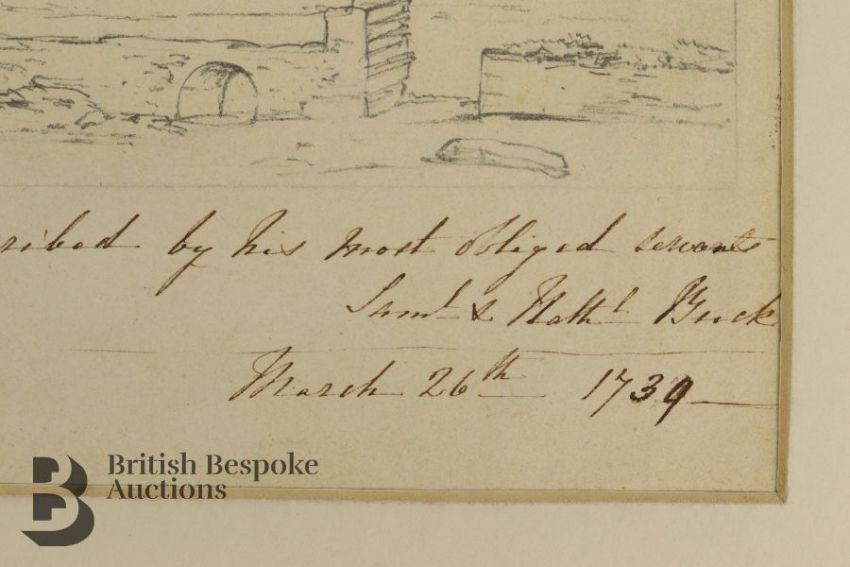 ribed by his most obliged servants
Saml & Nathl Buck
March 26th 1739
British Bespoke
Auctions